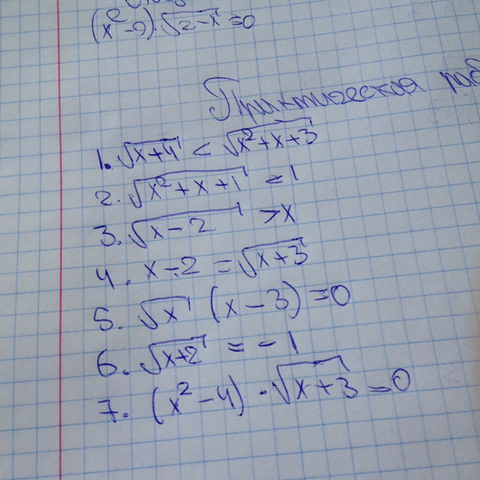 (x²-9)·√2-x=0
Практическая
1. √x+4 < √x²+x+3
2. √x²+x+1 = 1
3. √x-2 > x
4. x-2 = √x+3
5. √x (x-3)=0
6. √x+2 = -1
7. (x²-4)·√x+3=0